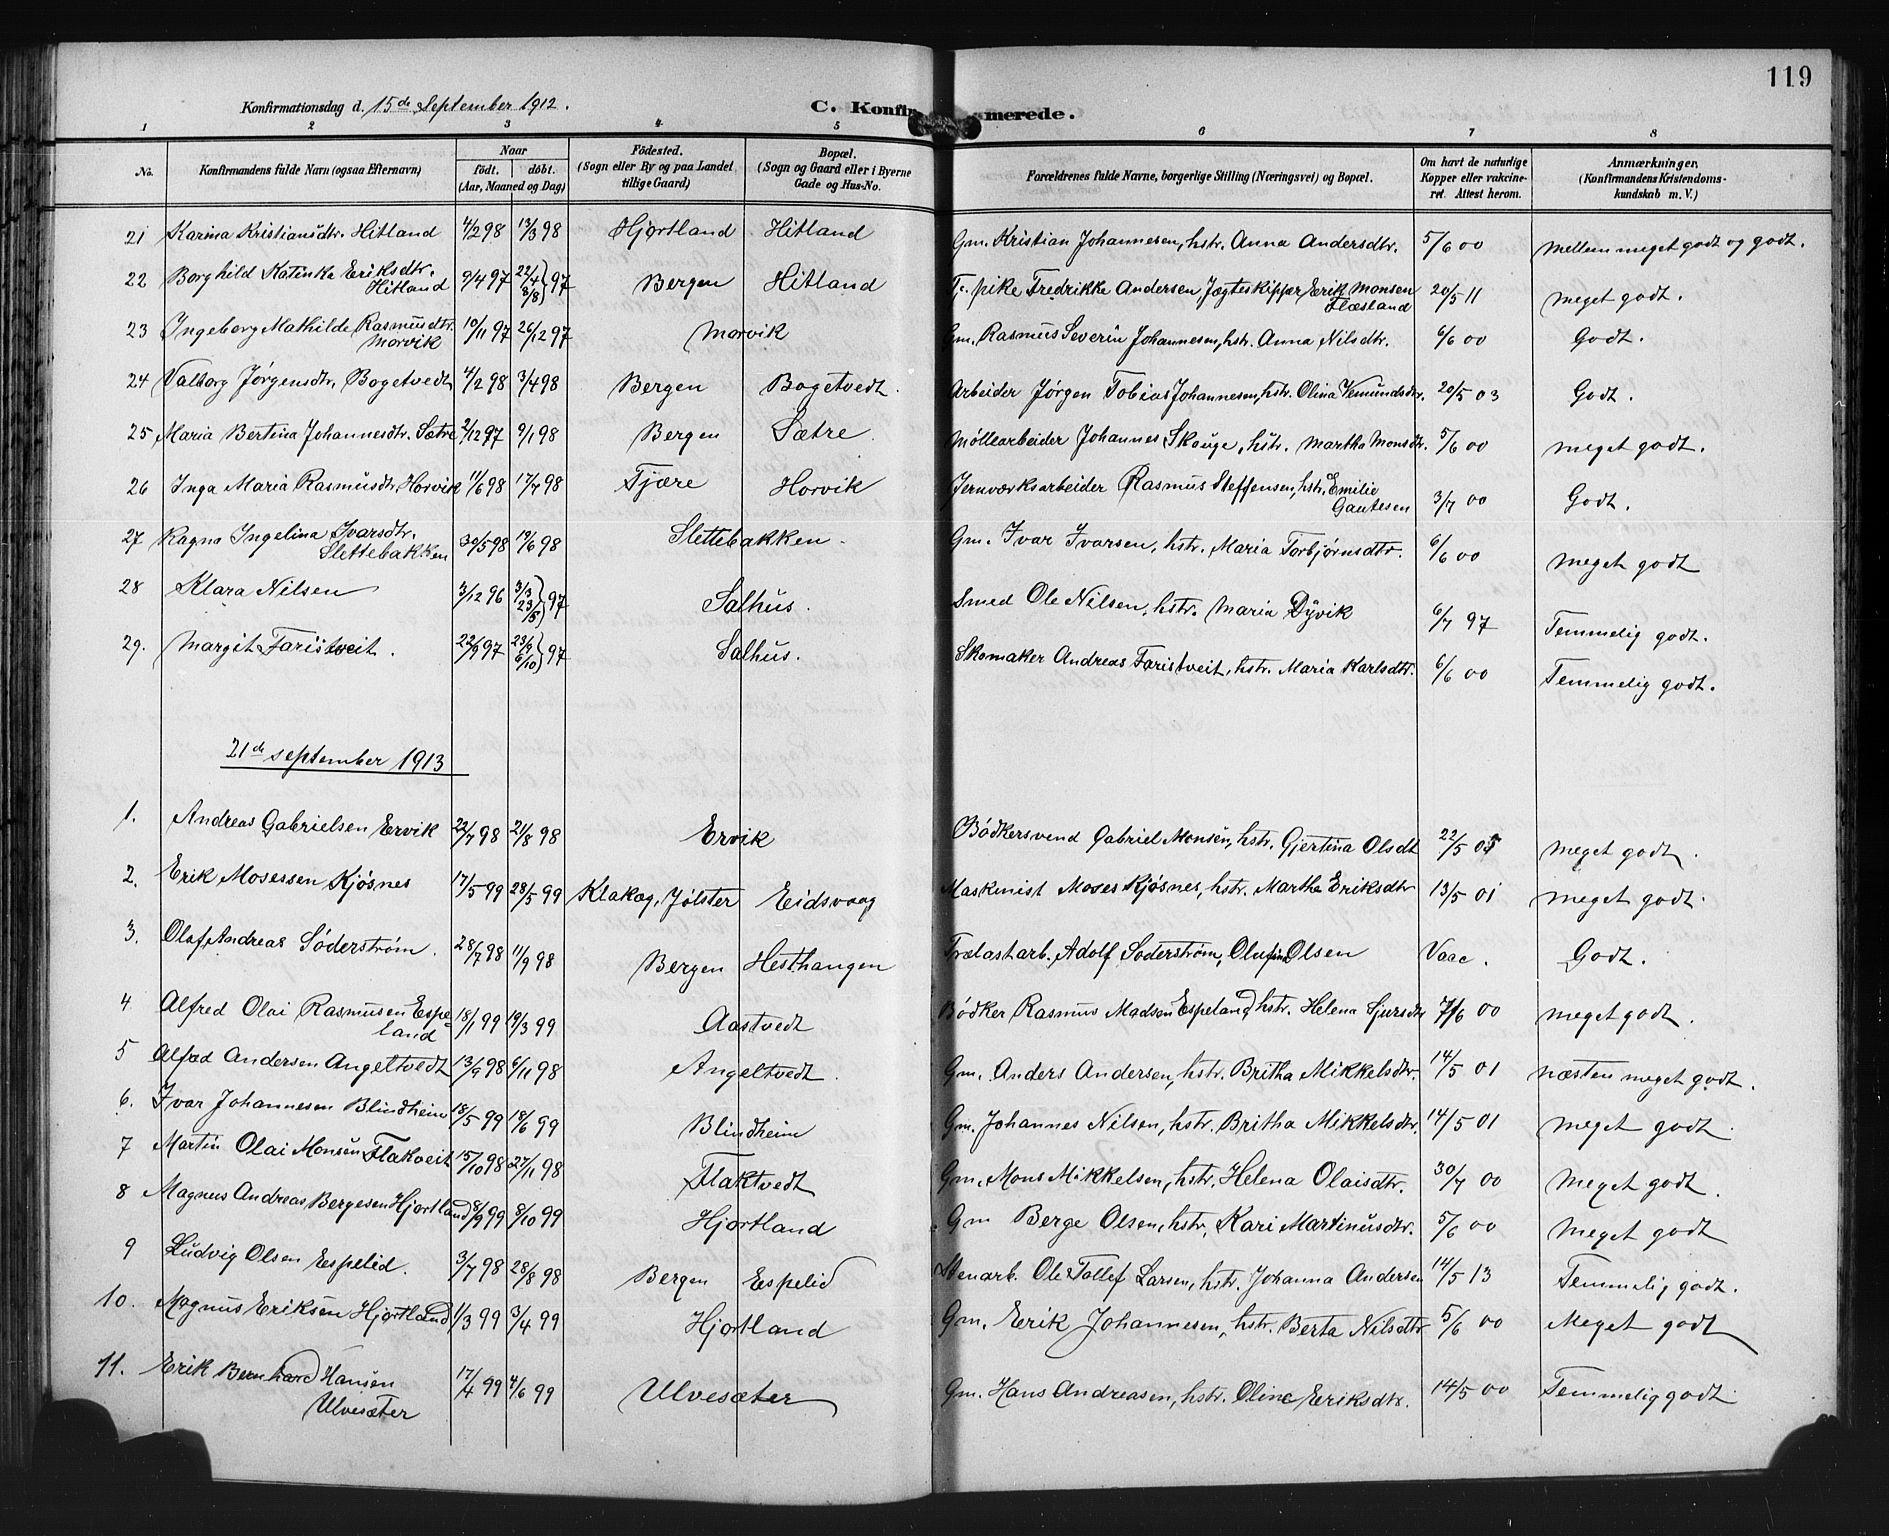 119
Konfirmationsdag d. 15de September 1912.
C. Konfir merede.
1 2 3 4 5 6 7 8
No.
Konfirmandens fulde Navn (ogsaa Efternavn)
Naar
født. døbt.
(Aar, Maaned og Dag)
Fødested.
(Sogn eller By og paa Landet
tillige Gaard)
Bopæl.
(Sogn og Gaard eller i Byerne
Gade og Hus-No.
Forældrenes fulde Navne, borgerlige Stilling (Næringsvei) og Bopæl.
Om havt de naturlige
Kopper eller vakcine-
ret. Attest herom.
Anmærkninger.
(Konfirmandens Kristendoms-
kundskab m. V.)
21 Karina Kristiansdtr. Hitland 4/2 98 13/3 98 Hjortland Hitland Gm. Kristian Johannesen, hstr. Anna Andersdtr. 5/6 00 Mellem meget godt og godt.
22 Borghild Katinka Eriksdtr. Hitland 9/4 97 22/4 8/8 } 97 Bergen Hitland pike Fredrikke Andersen Jægteskipper Erik Monsen Flæsland 20/5 11 meget godt.
23 Ingeborg Mathilde Rasmusdtr. Morvik 10/11 97 26/12 97 Morvik Gm. Rasmus Severin Johannesen, hstr. Anna Nilsdtr. 6/6 00 Godt.
24 Valborg Jørgensdtr. Bogetvedt 4/2 98 3/4 98 Bergen Bogetvedt. Arbeider Jørgen Tobias Johannesen, hstr. Olina Vemundsdtr. 20/5 03 Godt.
25 Maria Bertina Johannesdtr. Sætre 2/12 97 9/1 98 Bergen Sætre. Møllearbeider Johannes Skouge, hstr. Martha Monsdtr. 5/6 00 meget godt.
26 Inga Maria Rasmusdtr. Horvik 11/6 98 17/7 98 Tjære Horvik Jernværksarbeider Rasmus Steffensen, hstr. Emilie Gautesen 3/7 00 Godt.
27 Ragna Ingelina Ivarsdtr. Slettebakken 30/5 98 19/6 98 Slettebakken. Gm. Ivar Ivarsen, hstr. Maria Torbjørnsdtr. 6/6 00 meget godt
28 Klara Nilsen 3/12 96 3/3 23/5 } 97 Salhus. Smed Ole Nilsen, hstr. Maria Dyvik 6/7 97 Temmelig godt.
29. Margit Faristveit. 22/9 97 23/9 6/10 } 97 Salhus. Skomaker Andreas Faristveit, hstr. Maria Karlsdtr. 6/6 00 Temmelig godt.
21de september 1913
1. Andreas Gabrielsen Ervik 22/7 98 21/8 98 Ervik Bødkersvend Gabriel Monsen, hstr. Gjertina Olsdt 22/5 05 meget godt.
2. Erik Mosessen Kjøsnes 17/5 99 28/5 99 Klakæg, Jølster Eidsvaag Maskinist Moses Kjøsnes, hstr. Martha Eriksdtr 13/5 01 meget godt.
3. Olaf Andreas Söderstrøm. 28/7 98 11/9 98 Bergen Hesthaugen Trælastarb. Adolf Soderstrøm, Olufine Olsen Vacc. Godt.
4 Alfred Olai Rasmusen Espeland 18/1 99 19/3 99 Aastvedt Bødker Rasmus Madsen Espeland, hstr. Helena Sjursdtr 7/6 00 meget godt.
5 Alfred Andersen Angeltvedt 13/9 98 6/11 98 Angeltvedt. Gm. Anders Andersen, hstr. Britha Mikkelsdtr. 14/5 01 næsten meget godt.
6. Ivar Johannesen Blindheim 18/5 99 18/6 99 Blindheim Gm. Johannes Nilsen, hstr. Britha Mikkelsdtr. 14/5 01 meget godt.
7 Martin Olai Monsen Flakveit 15/10 98 27/11 98 Flaktvedt Gm. Mons Mikkelsen, hstr. Helena Olaisdtr. 30/7 00 Meget godt.
8 Magnus Andreas Bergesen Hjortland 8/9 99 8/10 99 Hjortland Gm Berge Olsen, hstr. Kari Martinusdtr. 5/6 00 Meget godt
9 Ludvig Olsen Espelid. 3/7 98 28/8 98 Bergen Espelid Stenarb. Ole Tollef Larsen, hstr. Johanna Andersen 14/5 13 Temmelig godt.
10. Magnus Eriksen Hjortland 1/3 99 3/4 99 Hjortland Gm. Erik Johannesen, hstr. Berta Nilsdtr 5/6 00 Meget godt
11. Erik Bernhard Hansen Ulvesæter 17/4 99 4/6 99 Ulvesæter Gm. Hans Andreasen, hstr. Oline Eriksdtr. 14/5 00 Temmelig godt